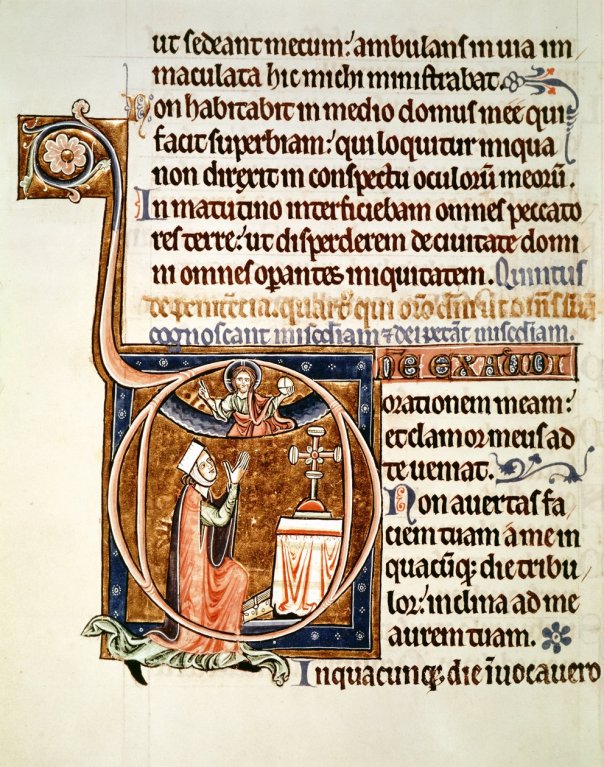 ut sedeant mecum: ambulans in uia im
maculata hic michi ministrabat.
Non habitabit in medio domus mee qui
facit superbiam: qui loquitur iniqua
non direxit in conspectu oculorū meorū.
In matutino interficiebam omnes peccato
res terre: ut disperderem de ciuitate domi
ni omnes oꝑantes iniquitatem. Quintus
de penitētia. qui
cognoscant ⁊ dei petāt
Dn̄e exaudi
orationem meam:
et clamor meus ad
te ueniat.
Non auertas fa
ciem tuam a me in
quacūqꝫ die tribu
lor: inclina ad me
aurem tuam.
In quacunqꝫ die īuocauero